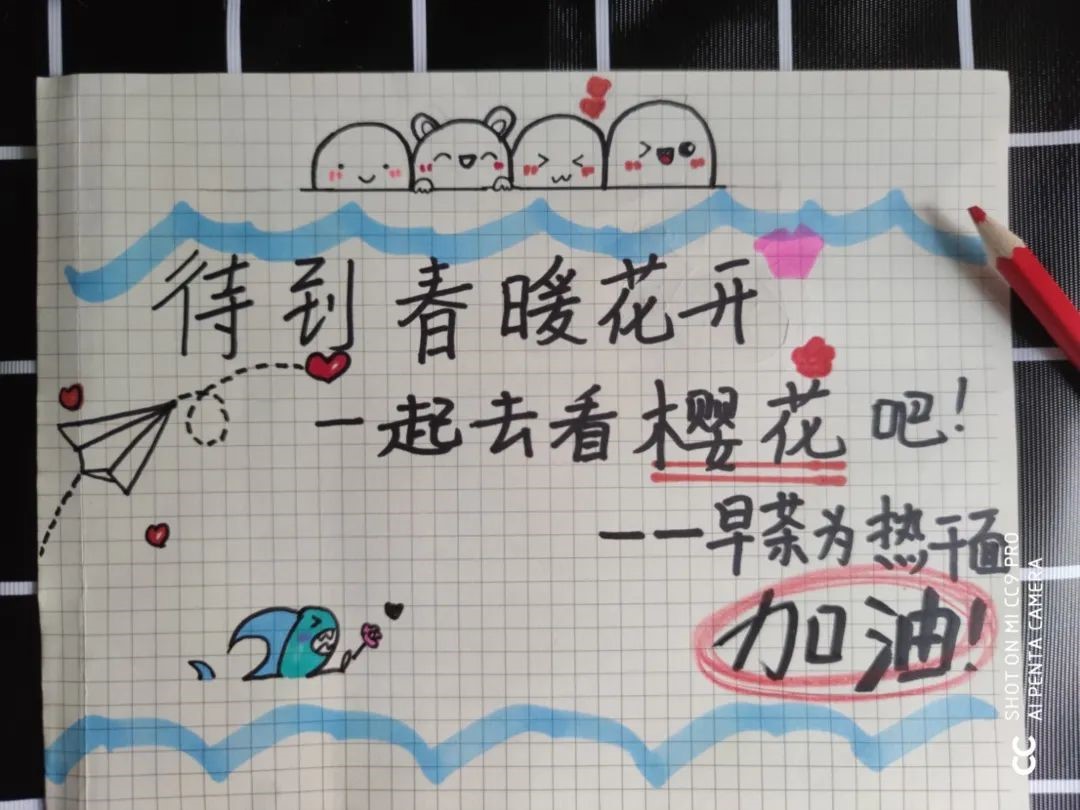 待到春暖花开
一起去看樱花吧！
——早茶为热干面
加油！
SHOT ON MI CC9 PRO
AI PENTA CAMERA